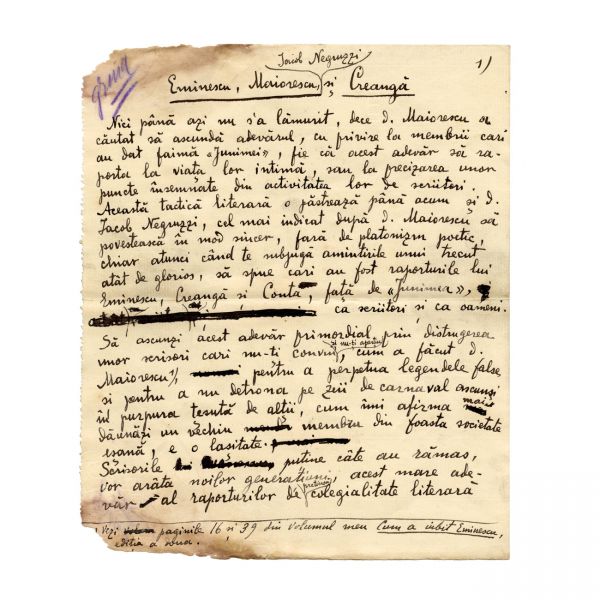 Iacob Negruzzi
1)
Eminescu, Maiorescu, și Creangă
Nici până azi nu s'a lămurit, dece d. Maiorescu a
căutat să ascundă adevărul, cu privire la membrii cari
au dat faimă «Junimei», fie că acest adevăr să ra-
porta la viața lor intimă, sau la precizarea unor
puncte însemnate din activitatea lor de scriitori.
Această tactică literară o păstrează până acum și d.
Iacob Negruzzi, cel mai indicat după d. Maiorescu să
povestească în mod sincer, fară de platonizm poetic,
chiar atunci când te subjugă amintirile unui trecut
atât de glorios, să spue cari au fost raporturile lui
Eminescu, Creangă și Conta, față de «Junimea»,
ca scriitori și ca oameni.
Să ascunzi acest adevăr primordial, prin distrugerea
unor scrisori cari nu-ți convin, cum a făcut d.
și nu-ți aparțin
Maiorescu 1), pentru a perpetua legendele false
și pentru a nu detrona pe zeii de carnaval ascunși
în purpura țesută de alții, cum îmi afirma mai
dăunăzi un vechiu membru din foasta societate
esană, e o lașitate.
Scrisorile puține câte au rămas,
vor arăta noilor generațiuni, acest mare ade-
văr al raporturilor de colegialitate literară
Vezi paginile 16 și 39 din volumul meu Cum a iubit Eminescu,
ediția a doua.